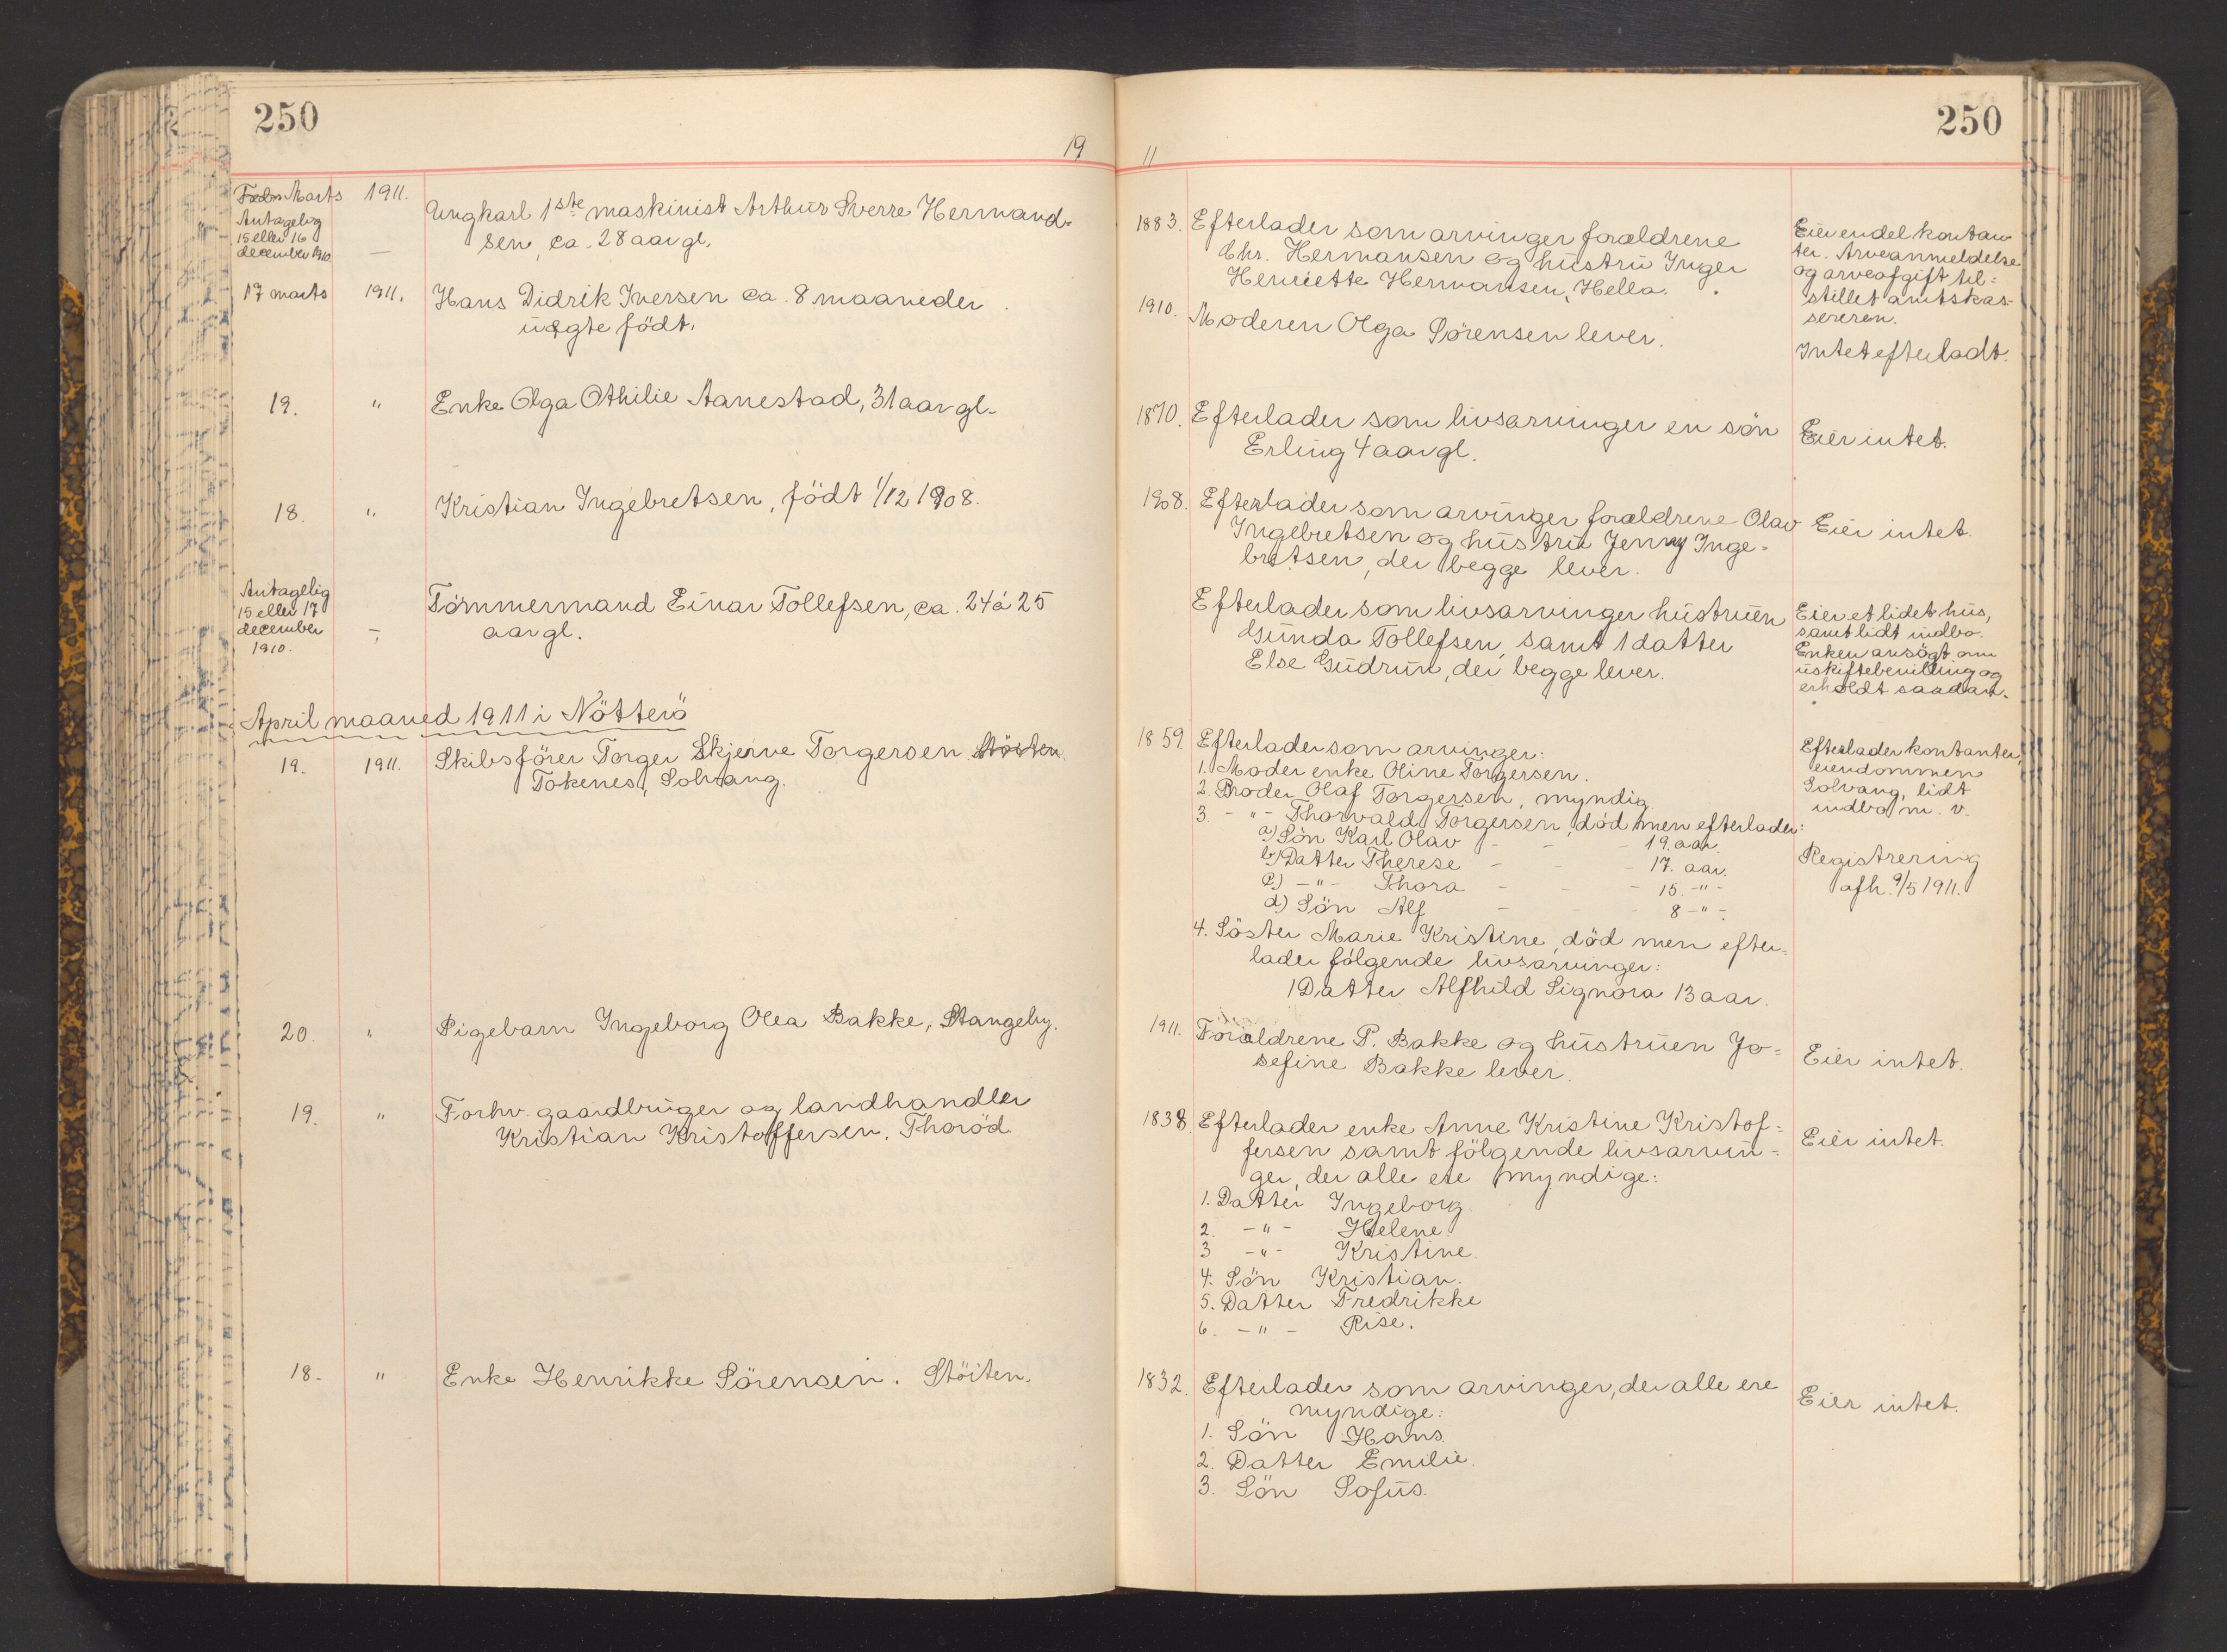 250
19
Marts 1911.
Antagelig
15 eller 16
december 1910. —
Ungkarl 1ste maskinist Arthur Sverre Hermand-
sen, ca. 28 aar gl.
17 marts 1911. Hans Didrik Iversen ca. 8 maaneder
uægte födt.
19. " Enke Olga Othilie Aanestad, 31 aar gl.
18. " Kristian Ingebretsen, födt 1/12 1908.
Antagelig
15 eller 17
december —
1910.
Tömmermand Einar Tollefsen, ca. 24 á 25
aar gl.
April maaned 1911 i Nötterö
19. 1911. Skibsförer Torger Skjerve Torgersen Stöiten.
Tokenes, Solvang.
20. " Pigebarn Ingeborg Olea Bakke, Stangeby.
19. " Forhv. gaardbruger og landhandler
Kristian Kristoffersen. Thoröd
18. " Enke Henrikke Sörensen. Stöiten.
250
11
1883. Efterlader som arvinger forældrene
Chr. Hermansen og hustru Inger
Henriette Hermansen, Hella.
Eier endel kontan-
ter. Arveanmeldelse
og arveafgift til-
stillet amtskas-
sereren.
1910. Moderen Olga Sörensen lever.
Intet efterladt.
1870. Efterlader som livsarvinger en sön
Erling 4 aar gl.
Eier intet.
1908. Efterlader som arvinger forældrene Olav
Ingebretsen og hustru Jenny Inge-
bretsen, der begge lever.
Eier intet.
Efterlader som livsarvinger hustruen
Gunda Tollefsen, samt 1 datter
Else Gudrun, der begge lever.
Eier et lidet hus,
samt lidt indbo.
Enken ansögt om
uskiftebevilling og
erholdt saadan.
1859. Efterlader som arvinger:
1. Moder enke Oline Torgersen.
2. Broder Olaf Torgersen, myndig
3. - " - Thorvald Torgersen, död men efterlader:
a) Sön Karl Olav - - - 19. aar.
b) Datter Therese - - - 17. aar.
c) - " - Thora - - - 15. - " -
d) Sön Alf - - - 8 - " -
4. Söster Marie Kristine, död men efter-
lader fölgende livsarvinger:
1 Datter Alfhild Signora 13 aar.
Efterlader kontanter,
eiendommen
Solvang, lidt
indbo m. v.
Registrering
afh. 9/5 1911.
1911. Forældrene P. Bakke og hustruen Jo-
sefine Bakke lever.
Eier intet.
1838 Efterlader enke Anne Kristine Kristof-
fersen samt fölgende livsarvin-
ger, der alle ere myndige:
1. Datter Ingeborg
2. - " - Helene
3 - " - Kristine.
4. Sön Kristian.
5. Datter Fredrikke
6. - " - Rise.
Eier intet.
1832. Efterlader som arvinger, der alle ere
myndige:
1. Sön Hans.
2. Datter Emilie.
3. Sön Sofus.
Eier intet.